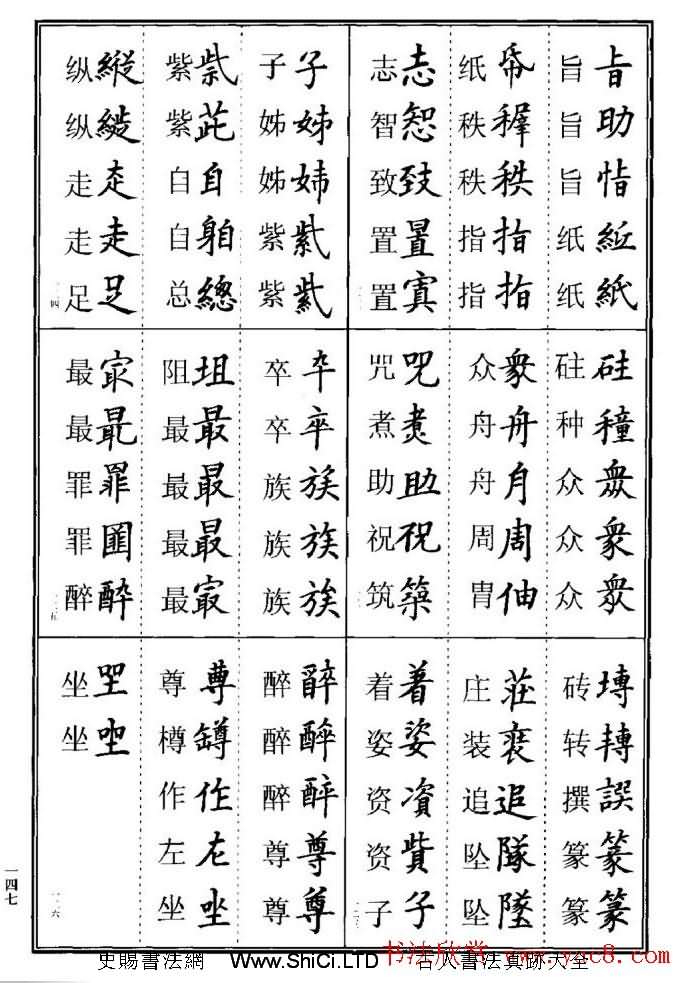 旨助恉紙紙
旨旨旨纸纸
帋稺秩指指
纸秩秩指指
志致置
志智致置置
硅種衆衆
砫种众众众
衆舟月周伷
众舟舟周胄
咒煑助祝築
咒煮助祝筑
塼轉譔篆篆
砖转撰篆篆
莊追隊墜
庄装追坠坠
着姿資貲子
着姿资资子
子姊姉紫紫
子姊姊紫紫
紫茈自躳總
紫紫自自总
縱縱走走足
纵纵走走足
卆卒族族族
卒卒族族族
坥最最最冣
阻最最最最
冣最罪酔
最最罪罪醉
醉酔尊尊
醉醉醉尊尊
尊罇作左坐
尊樽作左坐
坐坐
一四七
史賜書法網
Www.ShiCi.LTD
古人書法真跡大全
书法欣赏
www.yac8.com